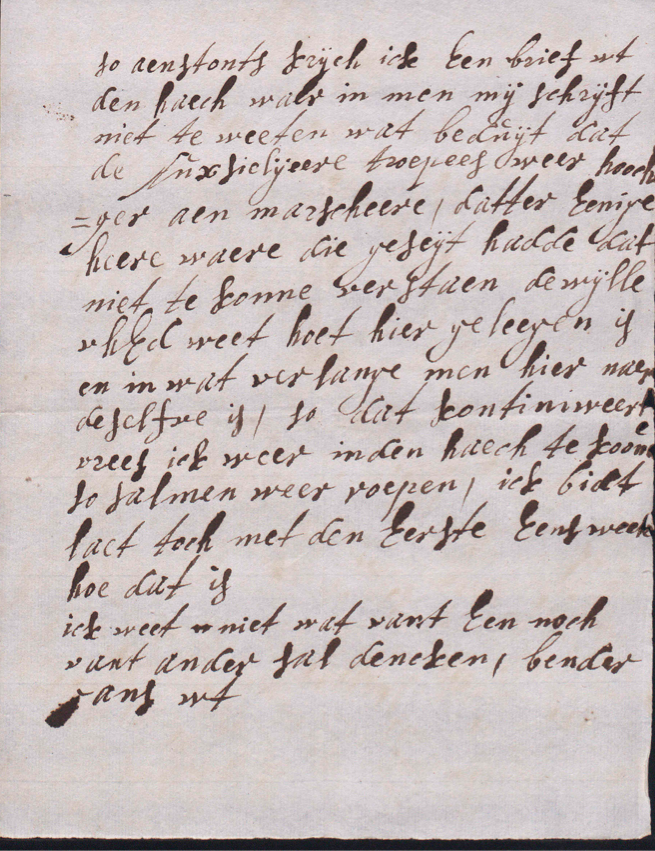 so aenstonts krijch ick Een brief wt
den haech waer in men mij schrijft
niet te weeten wat beduijt dat
de suxsielijeere troepees weer hooch
=ger aen marscheere, datter Eenige
heere waere die geseijt hadde dat
niet te konne verstaen dewijlle
vhEd weet hoet hier geleegen is
en in wat verlange men hier naer
deselfve is, so dat kontiniweert
vrees ick weer inden haech te koome
so salmen weer roepen, ick bidt
laet toch met den Eerste Eens weete
hoe dat is
ick weet niet wat vant Een noch
vant ander sal dencken, bender
vans wt